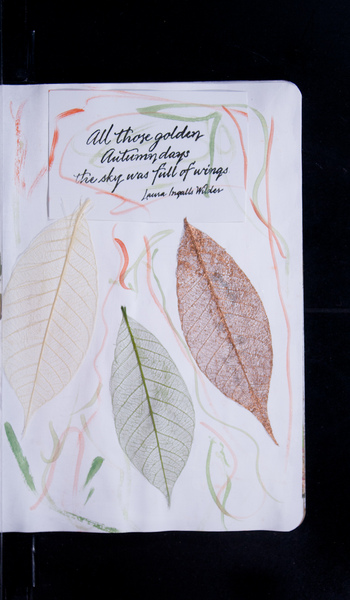 All those golden
Autumn days
the sky was full of wings
Laura Ingalls Wilder